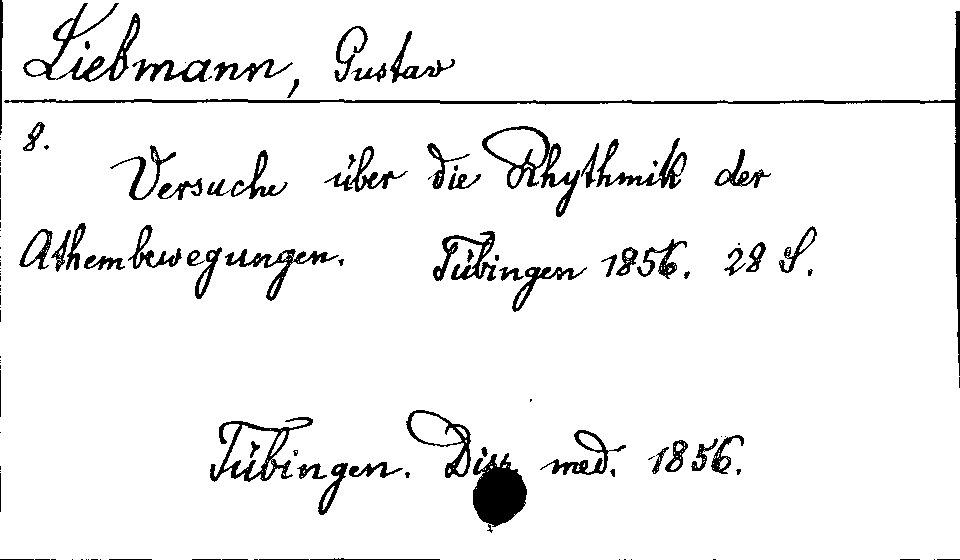 Liebmann, Gustav
8.
Versuche über die Rhythmik der
Athembewegungen. Tübingen 1856. 28 S.
Tübingen. Diss med. 1856.